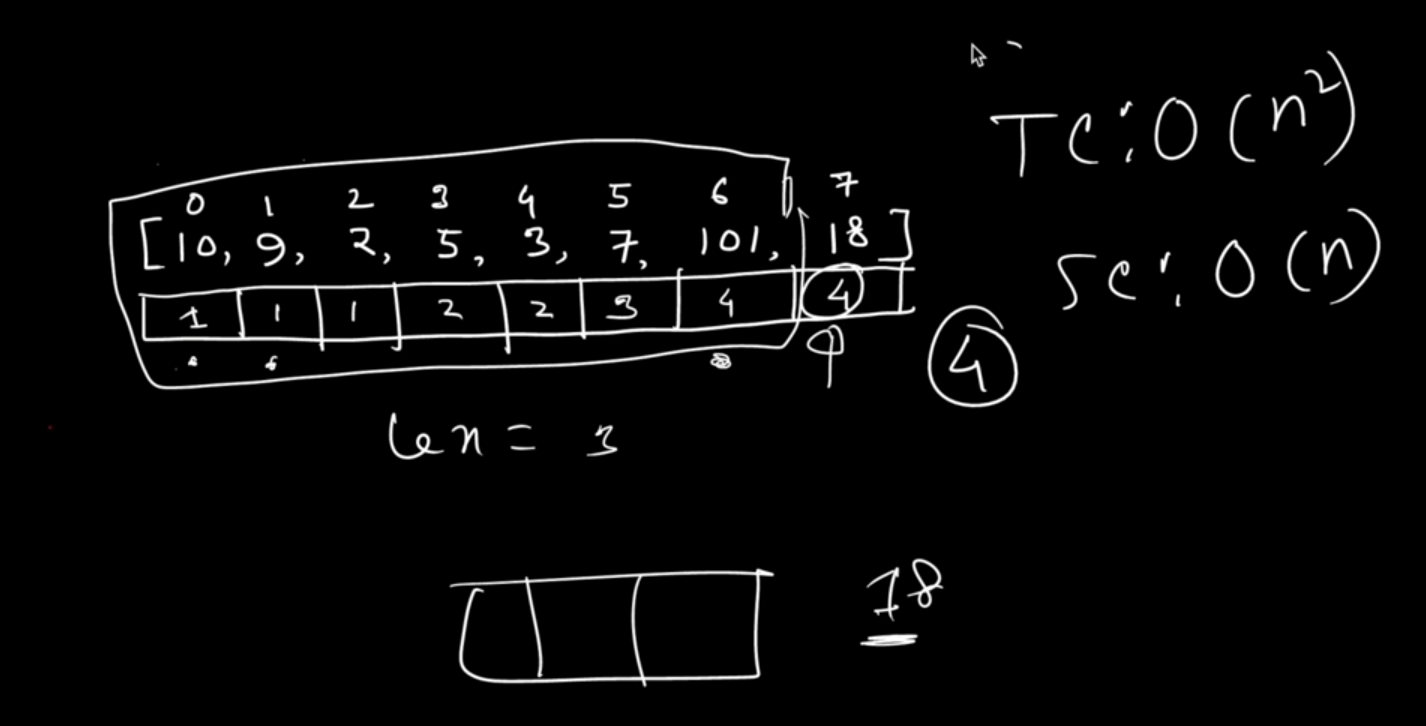 TC: O(n²)
0 1 2 3 4 5 6 7
[10, 9, 2, 5, 3, 7, 101, 18]
SC: O(n)
1 1 1 2 2 3 4 4
4
len = 3
18